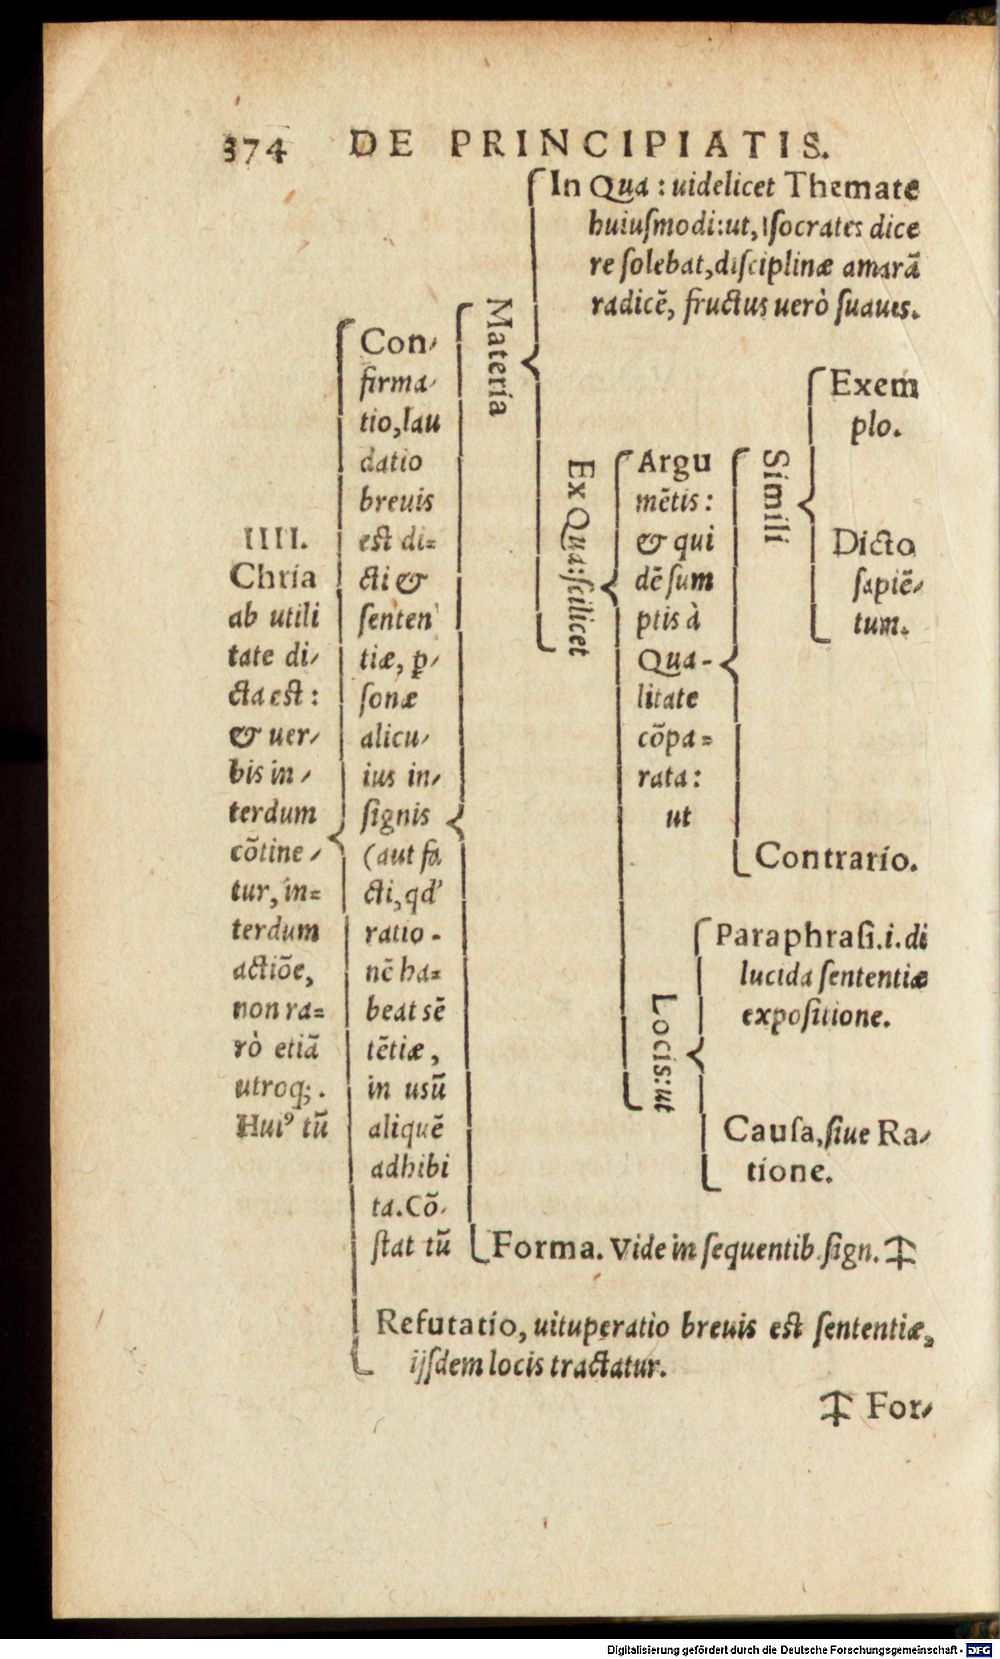 374 DE PRINCIPIATIS.
IIII.
Chria
ab utili
tate di⸗
cta est:
& uer⸗
bis in⸗
terdum
cõtine⸗
tur, in=
terdum
actiõe,
non ra=
rò etiã
utroq;.
Huiꝰ tũ
Con⸗
firma⸗
tio, lau
datio
breuis
est di=
cti &
senten
tiæ, ꝑ⸗
sonæ
alicu⸗
ius in⸗
signis
(aut fa
cti, qd'
ratio-
nẽ ha=
beat sẽ
tẽtiæ,
in usũ
aliquẽ
adhibi
ta. Cõ⸗
stat tũ
Materia
In Qua: uidelicet Themate
huiusmodi: ut, Isocrates dice
re solebat, disciplinæ amarã
radicẽ, fructus uerò suaues.
Ex Qua: scilicet
Argu
mẽtis:
& qui
dẽ sum
ptis à
Qua-
litate
cõpa=
rata:
ut
Simili
Exem
plo.
Dicto
sapiẽ⸗
tum.
Contrario.
Locis: ut
Paraphrasi. i. di
lucida sententiæ
expositione.
Causa, siue Ra⸗
tione.
Forma. Vide in sequentib. sign. ↥
Refutatio, uituperatio breuis est sententiæ,
ijsdem locis tractatur.
↥ For⸗
Digitalisierung gefördert durch die Deutsche Forschungsgemeinschaft - DFG